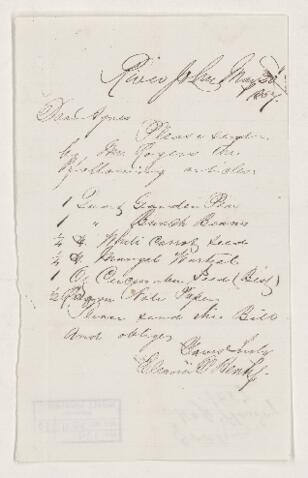 River John May 30
1867.
Dear Agnes
Please send
by Mr. Rogers the
following articles
1 Quart Garden Pea
1 " Bunch Beans
1/4 lb. White Carrot Seed
1/4 lb. Mangel Wurtzel
1 Oz Cucumber Seed (Best)
1/2 Note Paper
Please send the Bill
And oblige
Yours Truly